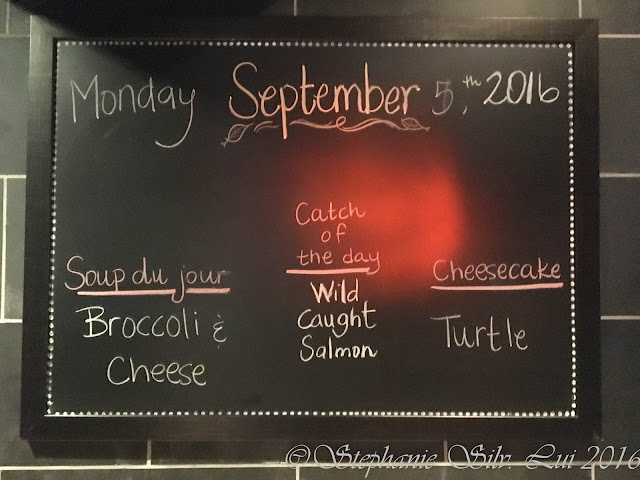 Monday September 5,th 2016
Soup du jour
Broccoli &
Cheese
Catch
of
the day
Wild
Caught
Salmon
Cheesecake
Turtle
©Stephanie Silv. Lui 2016